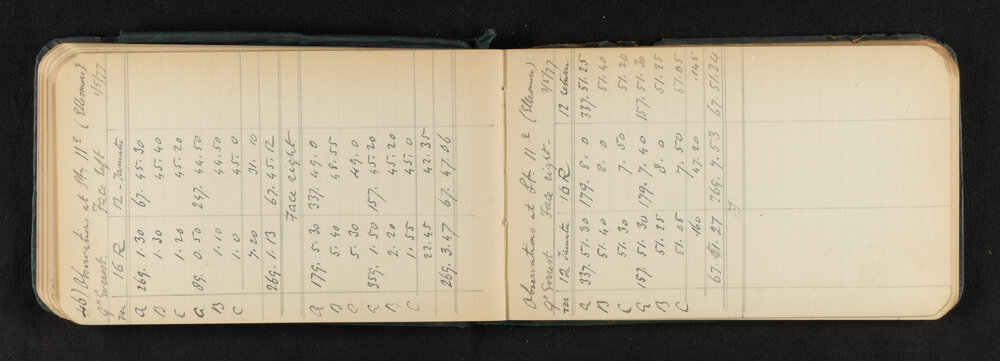 46) Observations at Stn. 11 E (Ellesmere)
9in Everest Face left 1/5/77
Ver 16 R 12 - Tamuta
A 269. 1. 30 67. 45. 30
B 1. 30 45. 40
C 1. 20 45. 20
A 89. 0. 50 247. 44. 50
B 1. 10 44. 50
C 1. 0 45. 0
7. 20 31. 10
269. 1. 13 67. 45. 12
Face right
A 179. 5. 30 337. 49. 0
B 5. 40 48. 55
C 5. 30 49. 0
A 359. 1. 50 157. 45. 20
B 2. 20 45. 20
C 1. 55 45. 0
22. 45 42. 35
269. 3. 47 67. 47. 06
Observations at St. 11 (Ellesmere)
9in Everest Face right 3/5/77
Ver 12 Tamuta 16 R 12 return
A 337. 51. 30 179. 8. 0 337. 51. 25
B 51. 40 8. 0 51. 40
C 51. 30 7. 50 51. 20
A 157. 51. 30 179. 7. 40 157. 51. 30
B 51. 25 8. 0 51. 25
C 51. 05 7. 50 51. 05
.160 47. 20 .145
67. 51. 27 269. 7. 53 67. 51. 24